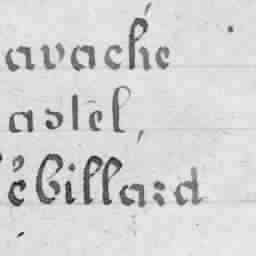 avache
astel,
ébillard